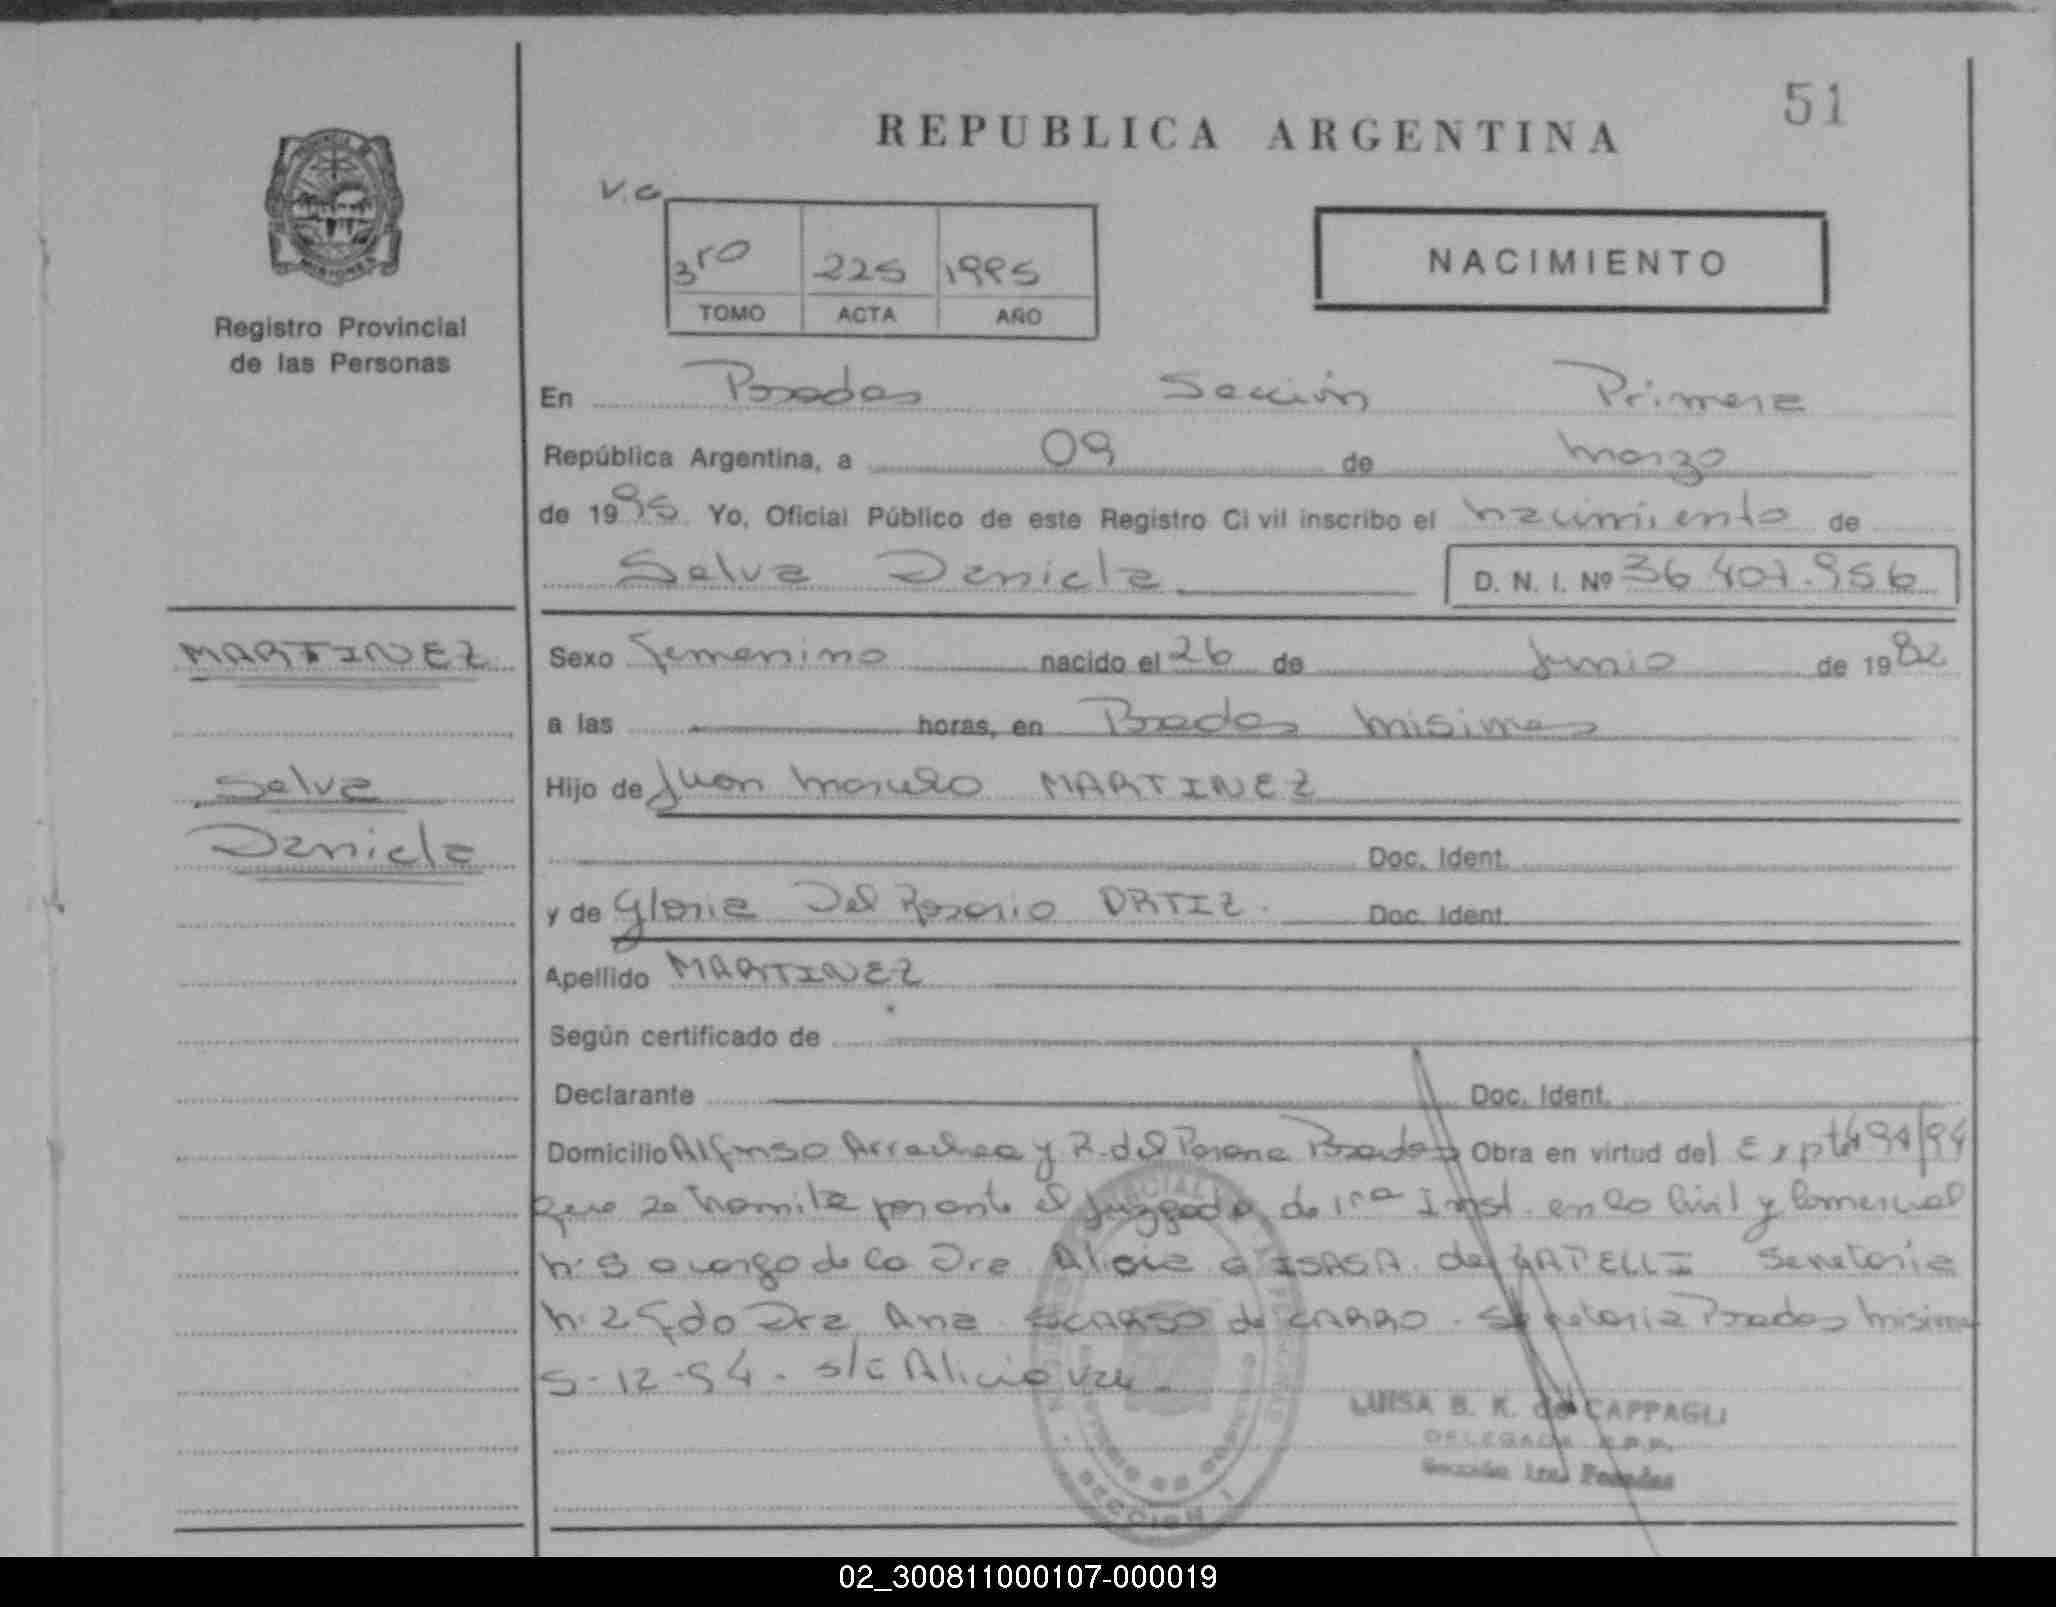 51
REPUBLICA ARGENTINA
MISIONES
Registro Provincial
de las Personas
V.C
3ro 225 1995
TOMO ACTA AÑO
NACIMIENTO
En Posadas Sección Primera
República Argentina, a 09 de marzo
de 1995 Yo, Oficial Público de este Registro Ci vil inscribo el nacimiento de
Selva Daniela D. N. I. Nº 36.407.956
MARTINEZ
Selva
Daniela
Sexo femenino nacido el 26 de Junio de 1982
a las horas, en Posadas Misiones
Hijo de Juan Marcelo MARTINEZ
Doc. Ident.
y de Gloria Del Rosario ORTIZ. Doc. Ident.
Apellido MARTINEZ
Según certificado de
Declarante Doc. Ident.
Domicilio Alfonso Arrechea y R. del Parana Posadas Obra en virtud del Expte 94
que se tramita por ante el Juzgado de 1ra Inst. en lo Civil y Comercial
n: 5 a cargo de la Dra Alicia ISASA de Secretoria
n: 2 fdo Dra Ana de CARRO. Secretoria Posadas Misiones
5-12-94. s/c Alicia
SECCION 1
LUISA B. K. de CAPPAGLI
DELEGADA R.P.P.
Sección 1ra. Posadas
02_300811000107-000019